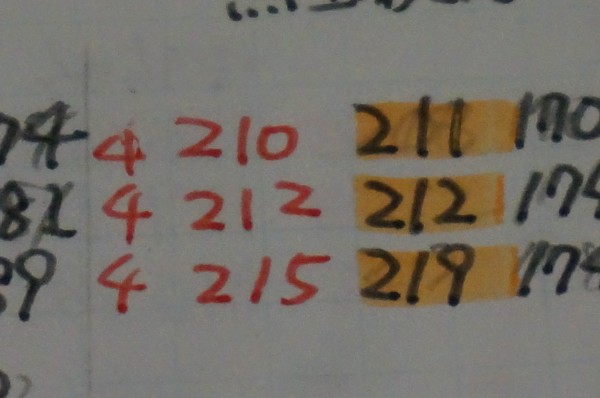 74 4 210 211 170
81 4 212 212 174
39 4 215 219 174